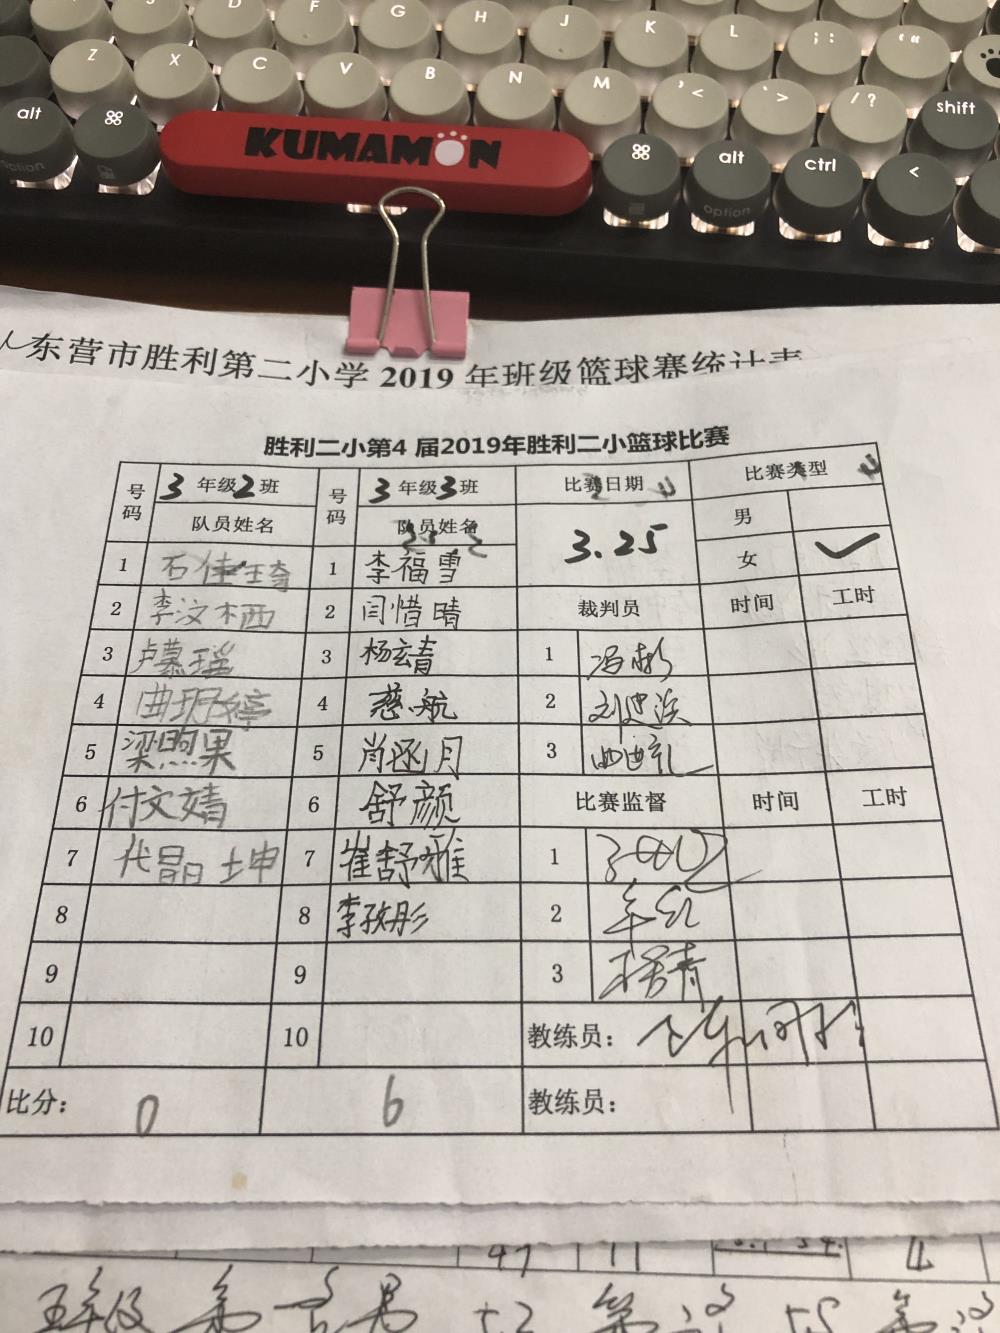 S D F G H J K L ; :
Z X C V B N M , < . > / ? shift
alt ⌘ KUMAMON ⌘ alt ctrl <
option option
东营市胜利第二小学 2019 年班级篮球赛统计表
胜利二小第4 届2019年胜利二小篮球比赛
号码 3 年级 2 班 号码 3 年级 3 班 比赛日期 比赛类型
队员姓名 队员姓名 3.25 男
女 ✓
1 石佳琦 1 李福雪 裁判员 时间 工时
2 李汶栖 2 闫惜晴
3 卢慕瑶 3 杨玄青 1
4 曲玥婷 4 慈航 2 刘建滨
5 梁煦果 5 肖函月 3
6 付文婧 6 舒颜 比赛监督 时间 工时
7 代晶坤 7 崔舒雅 1
8 8 李孜彤 2
9 9 3
10 10 教练员:
比分: 0 6 教练员:
47 11 4
五年级